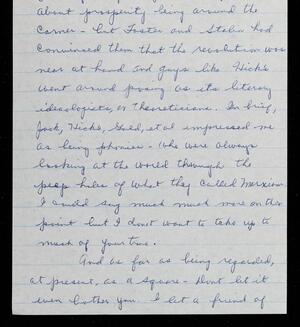 about prosperity being around the
corner - but Foster and Stalin had
convinced them that the revolution was
near at hand and guys like Hicks
went around posing as its literary
ideologists, or theoreticians. In brief,
Jack, Hicks, Gold, et al impressed me
as being phonies - who were always
looking at the world through the
peep holes of what they called Marxism.
I could say much much more on this
point but I don't want to take up to
much of your time.
And as far as being regarded,
at present, as a square - Dont let it
even bother you. I let a friend of